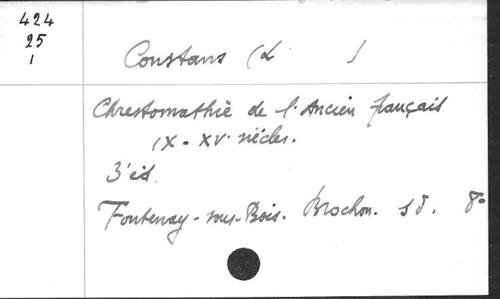 424
25
1
Constans (L )
Chrestomathie de l'Ancien français
IX - XV. siécles.
3'éd.
Fontenay-sous-Bois. Brochon. s d. 8°